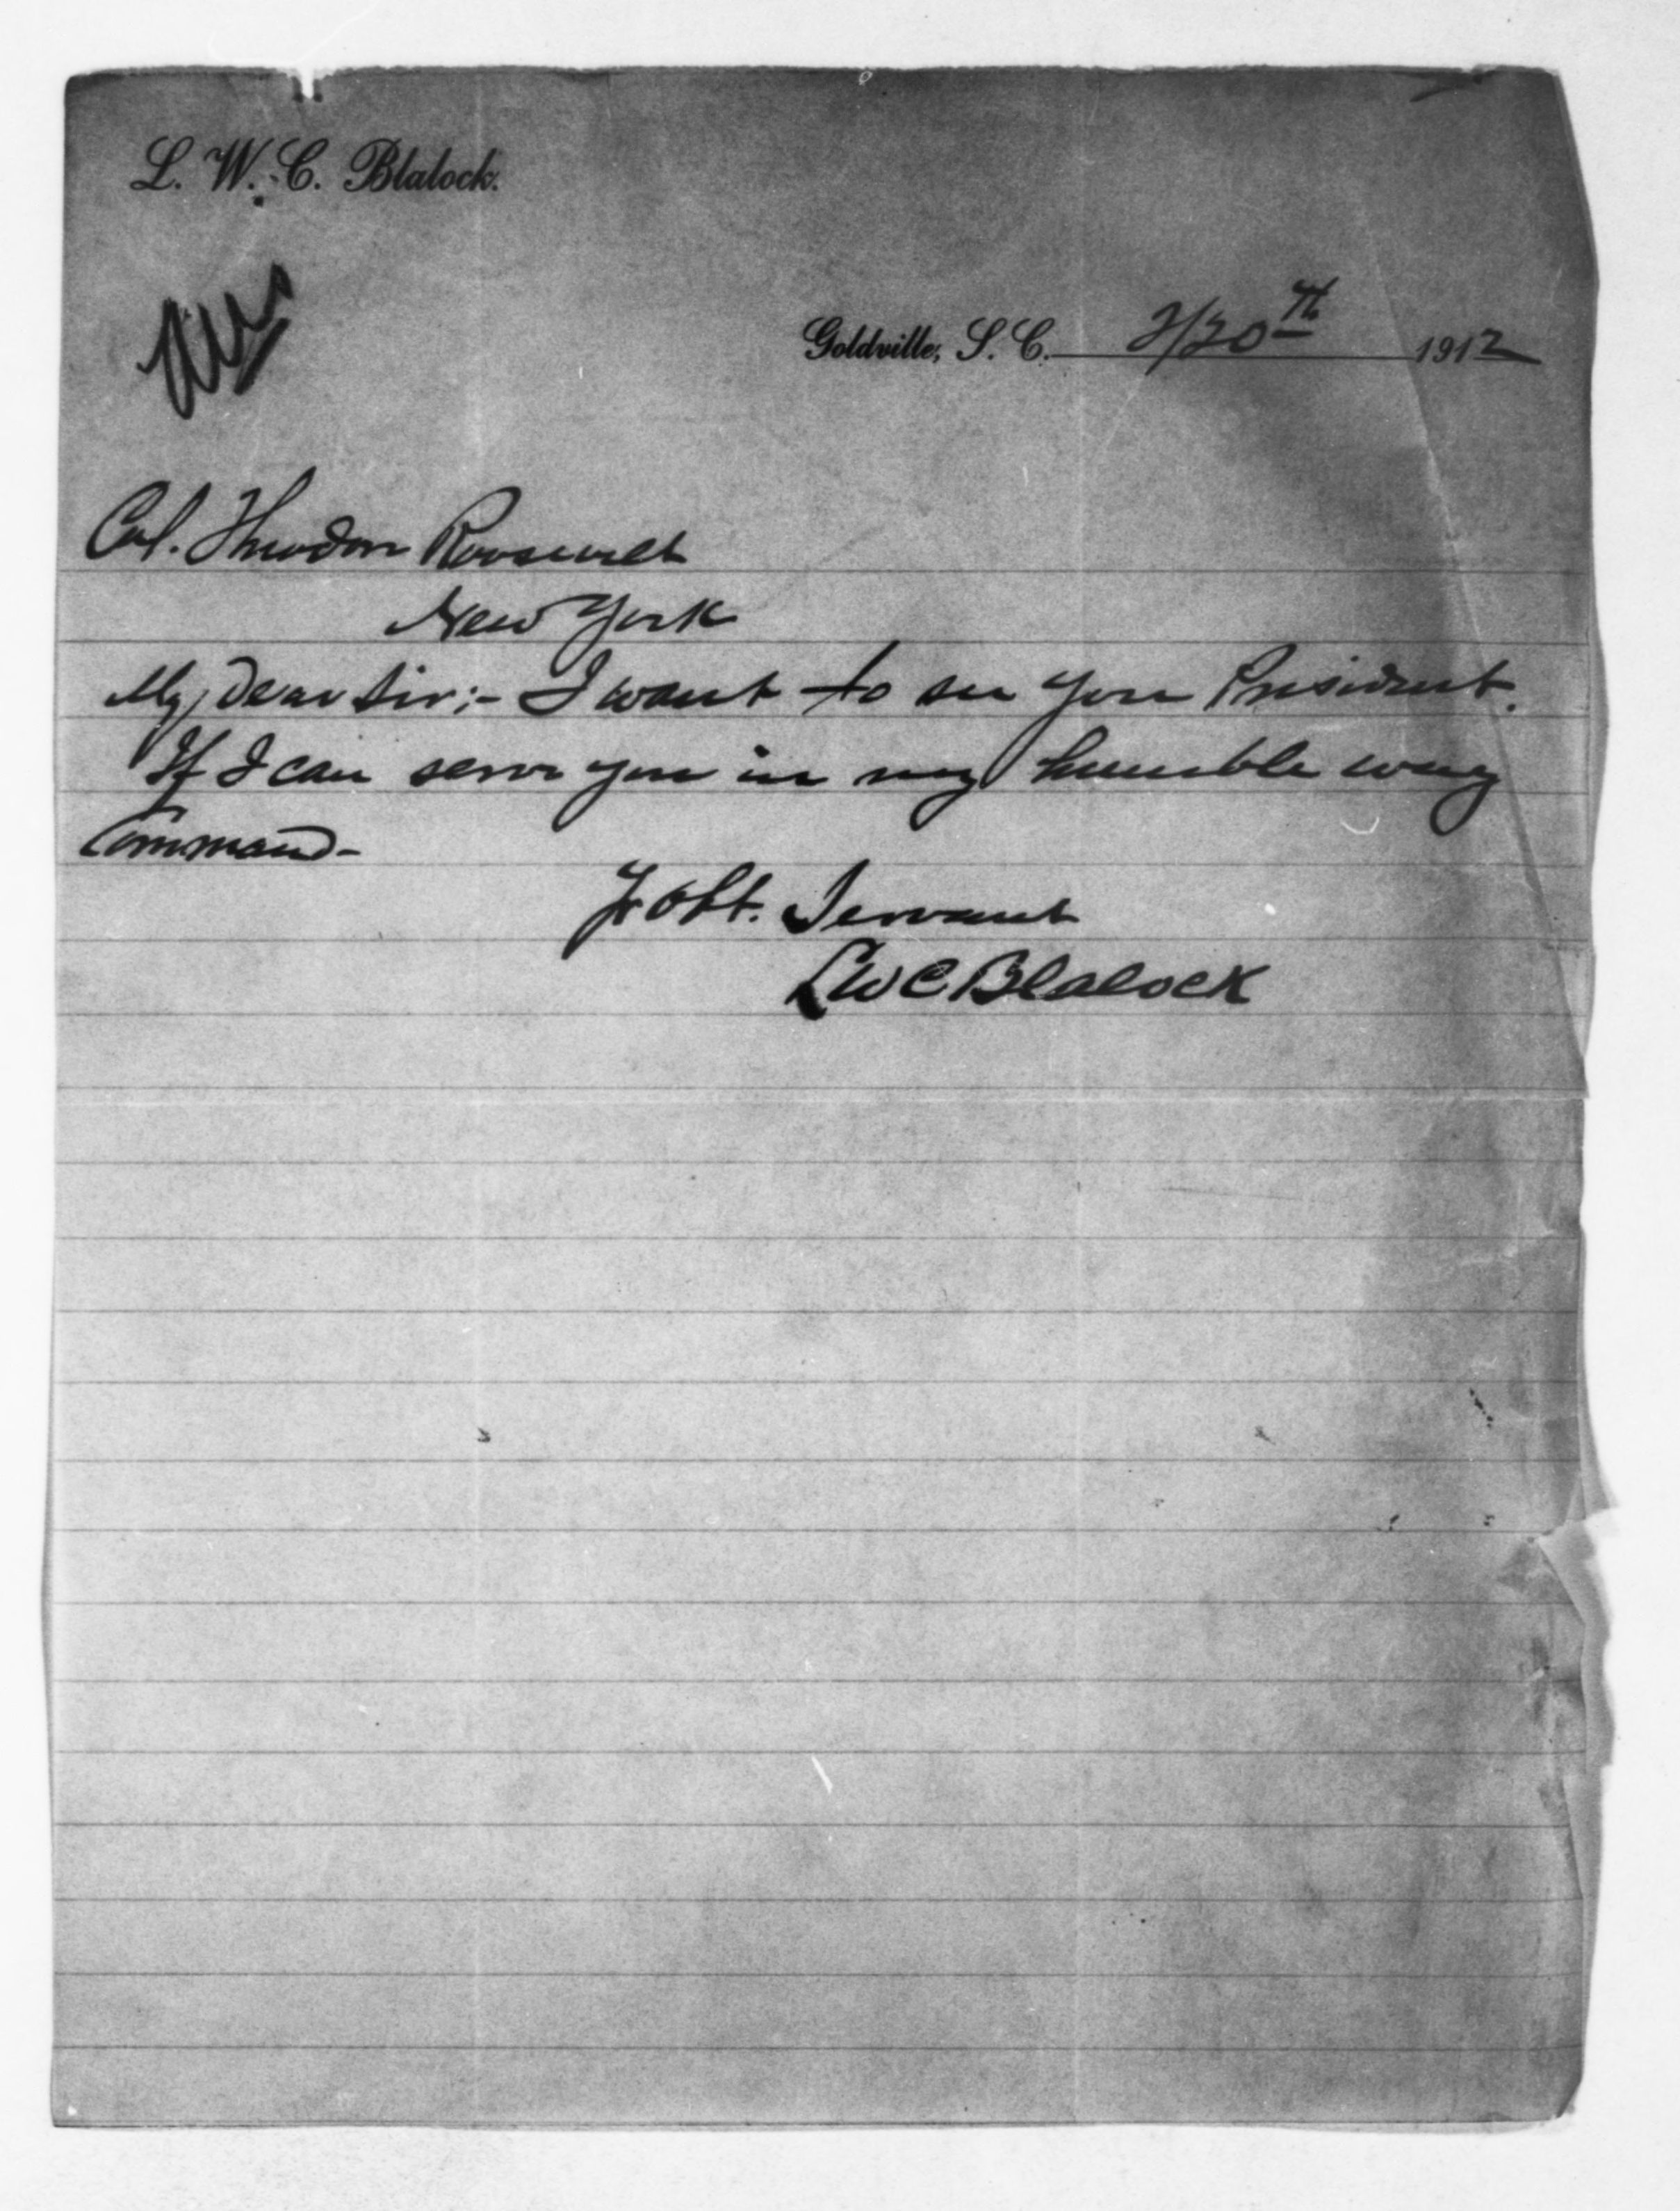 L. W. C. Blalock.
Goldville, S. C. 2/20th 1912
Col. Theodore Roosevelt
New York
My Dear Sir:- I want to see you President.
If I can serve you in my humble way
Command-
Yr obt. Servant
LWC Blalock